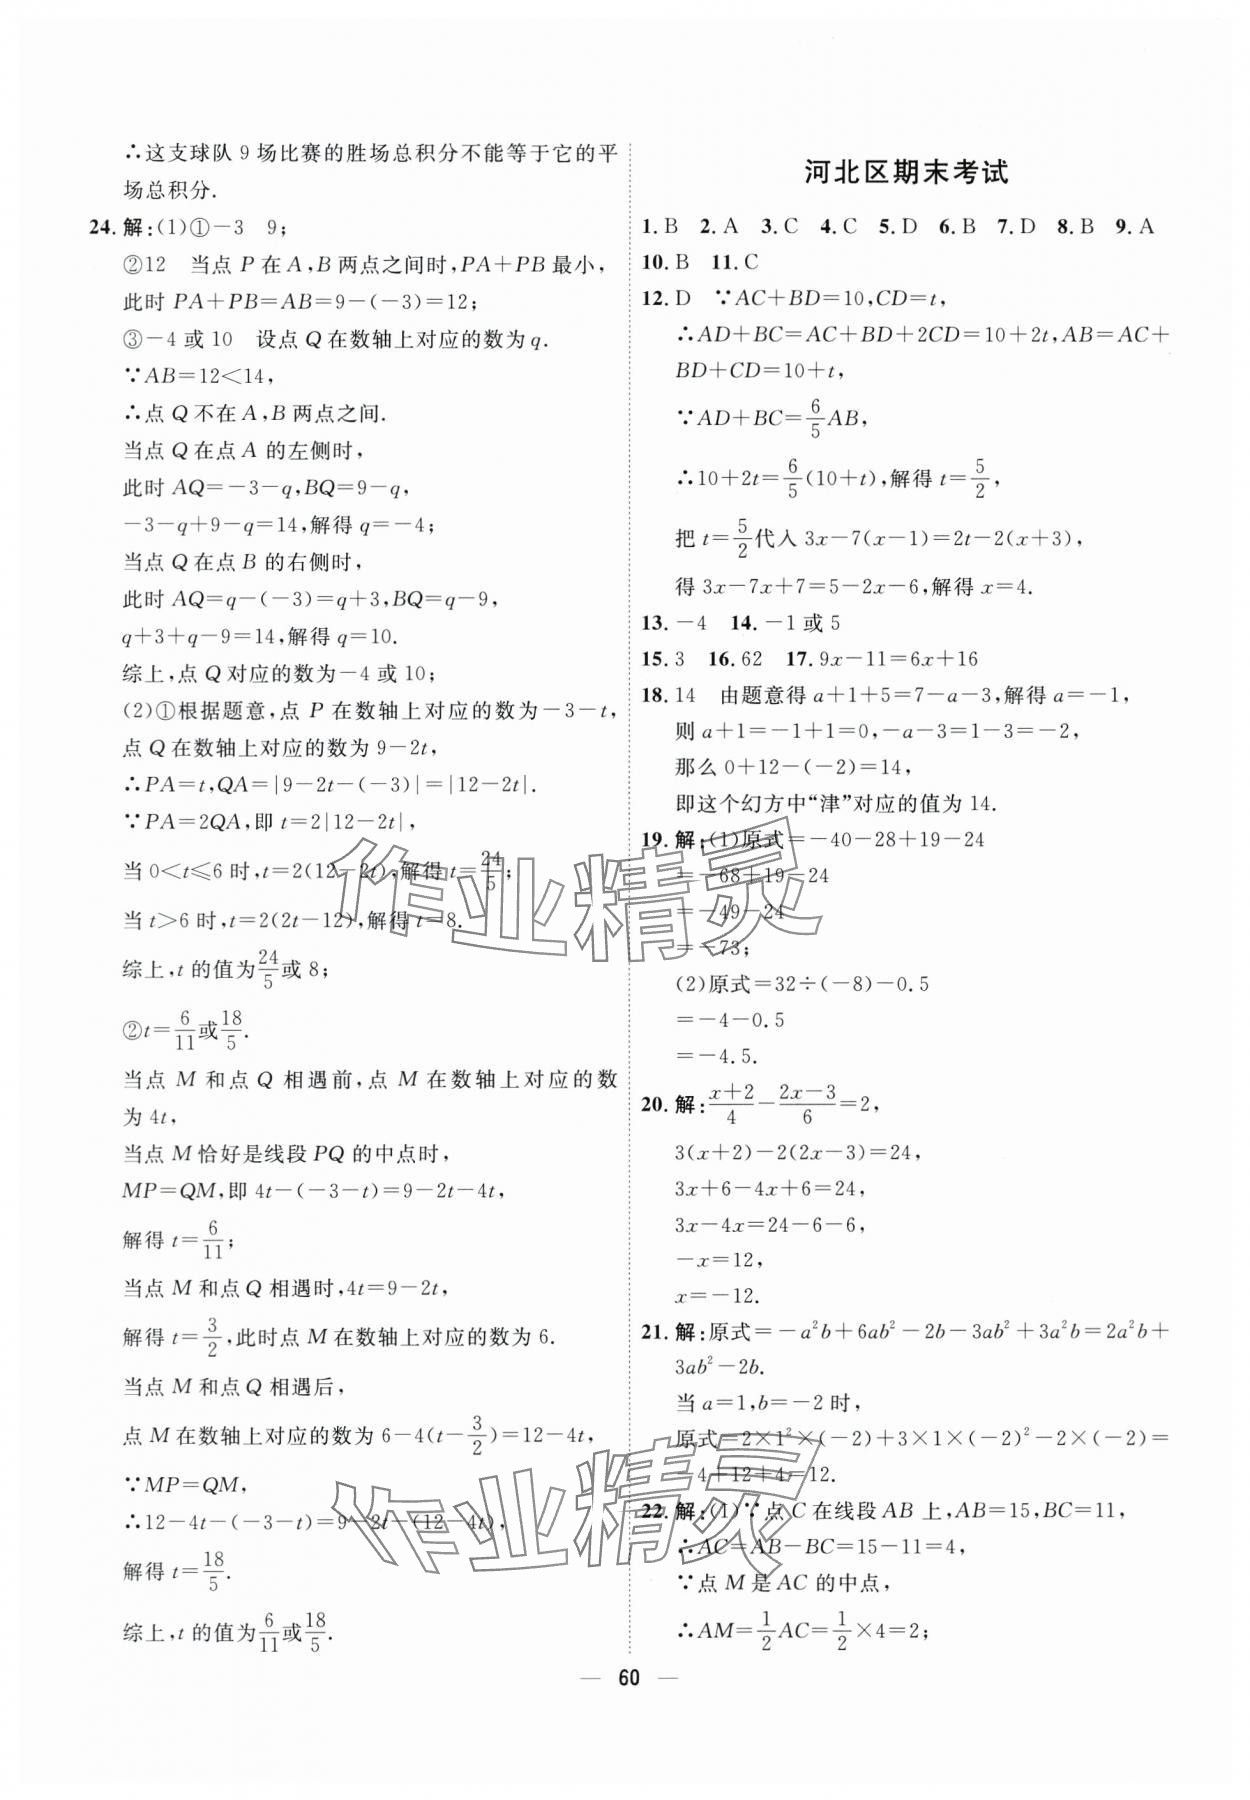 ∴这支球队 9 场比赛的胜场总积分不能等于它的平
场总积分.
24. 解:(1)①－3　9;
②12　当点 P 在 A,B 两点之间时,PA＋PB 最小,
此时 PA＋PB＝AB＝9－(－3)＝12;
③－4 或 10　设点 Q 在数轴上对应的数为 q.
∵AB＝12＜14,
∴点 Q 不在 A,B 两点之间.
当点 Q 在点 A 的左侧时,
此时 AQ＝－3－q,BQ＝9－q,
－3－q＋9－q＝14,解得 q＝－4;
当点 Q 在点 B 的右侧时,
此时 AQ＝q－(－3)＝q＋3,BQ＝q－9,
q＋3＋q－9＝14,解得 q＝10.
综上,点 Q 对应的数为－4 或 10;
(2)①根据题意,点 P 在数轴上对应的数为－3－t,
点 Q 在数轴上对应的数为 9－2t,
∴PA＝t,QA＝|9－2t－(－3)|＝|12－2t|.
∵PA＝2QA,即 t＝2|12－2t|,
当 0＜t≤6 时,t＝2(12－2t),解得 t＝24/5;
当 t＞6 时,t＝2(2t－12),解得 t＝8.
综上,t 的值为24/5或 8;
②t＝6/11或18/5.
当点 M 和点 Q 相遇前,点 M 在数轴上对应的数
为 4t,
当点 M 恰好是线段 PQ 的中点时,
MP＝QM,即 4t－(－3－t)＝9－2t－4t,
解得 t＝6/11;
当点 M 和点 Q 相遇时,4t＝9－2t,
解得 t＝3/2,此时点 M 在数轴上对应的数为 6.
当点 M 和点 Q 相遇后,
点 M 在数轴上对应的数为 6－4(t－3/2)＝12－4t,
∵MP＝QM,
∴12－4t－(－3－t)＝9－2t－(12－4t),
解得 t＝18/5.
综上,t 的值为6/11或18/5.
河北区期末考试
1. B　2. A　3. C　4. C　5. D　6. B　7. D　8. B　9. A
10. B　11. C
12. D　∵AC＋BD＝10,CD＝t,
∴AD＋BC＝AC＋BD＋2CD＝10＋2t,AB＝AC＋
BD＋CD＝10＋t,
∵AD＋BC＝6/5AB,
∴10＋2t＝6/5(10＋t),解得 t＝5/2,
把 t＝5/2代入 3x－7(x－1)＝2t－2(x＋3),
得 3x－7x＋7＝5－2x－6,解得 x＝4.
13. －4　14. －1 或 5
15. 3　16. 62　17. 9x－11＝6x＋16
18. 14　由题意得 a＋1＋5＝7－a－3,解得 a＝－1,
则 a＋1＝－1＋1＝0,－a－3＝1－3＝－2,
那么 0＋12－(－2)＝14,
即这个幻方中“津”对应的值为 14.
19. 解:(1)原式＝－40－28＋19－24
＝－68＋19－24
＝－49－24
＝－73;
(2)原式＝32÷(－8)－0.5
＝－4－0.5
＝－4.5.
20. 解:(x＋2)/4－(2x－3)/6＝2,
3(x＋2)－2(2x－3)＝24,
3x＋6－4x＋6＝24,
3x－4x＝24－6－6,
－x＝12,
x＝－12.
21. 解:原式＝－a²b＋6ab²－2b－3ab²＋3a²b＝2a²b＋
3ab²－2b.
当 a＝1,b＝－2 时,
原式＝2×1²×(－2)＋3×1×(－2)²－2×(－2)＝
－4＋12＋4＝12.
22. 解:(1)∵点 C 在线段 AB 上,AB＝15,BC＝11,
∴AC＝AB－BC＝15－11＝4,
∵点 M 是 AC 的中点,
∴AM＝1/2AC＝1/2×4＝2;
— 60 —
作业精灵
作业精灵